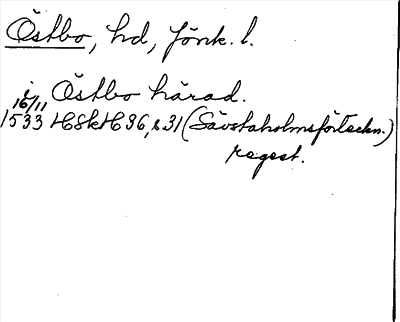 Östbo, hd, Jönk. l.
i Östbo härad.
16/11
1533 HSkH 36, s 31 (Sävstaholmsförteckn.)
regest.